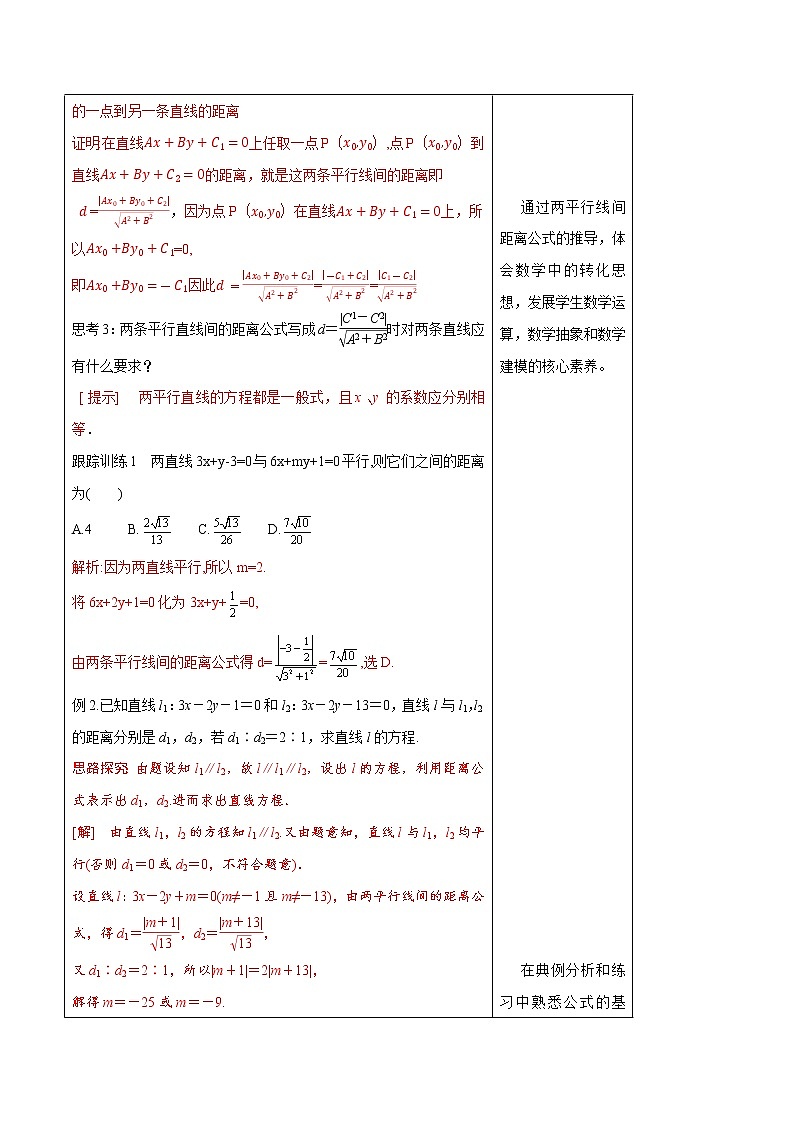 的一点到另一条直线的距离
证明:在直线Ax+By+C₁=0上任取一点P（x₀,y₀）,点P（x₀,y₀）到
直线Ax+By+C₂=0的距离，就是这两条平行线间的距离即
d=|Ax₀+By₀+C₂|/√(A²+B²)，因为点P（x₀,y₀）在直线Ax+By+C₁=0上，所
以Ax₀+By₀+C₁=0,
即Ax₀+By₀=−C₁因此d =|Ax₀+By₀+C₂|/√(A²+B²)=|−C₁+C₂|/√(A²+B²)=|C₁−C₂|/√(A²+B²)
思考3：两条平行直线间的距离公式写成d=|C1−C2|/√(A²+B²)时对两条直线应
有什么要求？
[提示] 两平行直线的方程都是一般式，且x、y 的系数应分别相
等．
跟踪训练1 两直线3x+y-3=0与6x+my+1=0平行,则它们之间的距离
为( )
A.4 B.2√13/13 C.5√13/26 D.7√10/20
解析:因为两直线平行,所以m=2.
将6x+2y+1=0化为3x+y+1/2=0,
由两条平行线间的距离公式得d=|−3−1/2|/√(3²+1²)=7√10/20,选D.
例2.已知直线l₁：3x－2y－1＝0和l₂：3x－2y－13＝0，直线l与l₁,l₂
的距离分别是d₁，d₂，若d₁∶d₂＝2∶1，求直线l的方程.
思路探究 由题设知l₁∥l₂，故l∥l₁∥l₂，设出l的方程，利用距离公
式表示出d₁，d₂.进而求出直线方程．
[解] 由直线l₁，l₂的方程知l₁∥l₂.又由题意知，直线l与l₁，l₂均平
行(否则d₁＝0或d₂＝0，不符合题意)．
设直线l：3x－2y＋m＝0(m≠－1且m≠－13)，由两平行线间的距离公
式，得d₁＝|m＋1|/√13，d₂＝|m＋13|/√13，
又d₁∶d₂＝2∶1，所以|m＋1|＝2|m＋13|，
解得m＝－25或m＝－9.
通过两平行线间
距离公式的推导，体
会数学中的转化思
想，发展学生数学运
算，数学抽象和数学
建模的核心素养。
在典例分析和练
习中熟悉公式的基